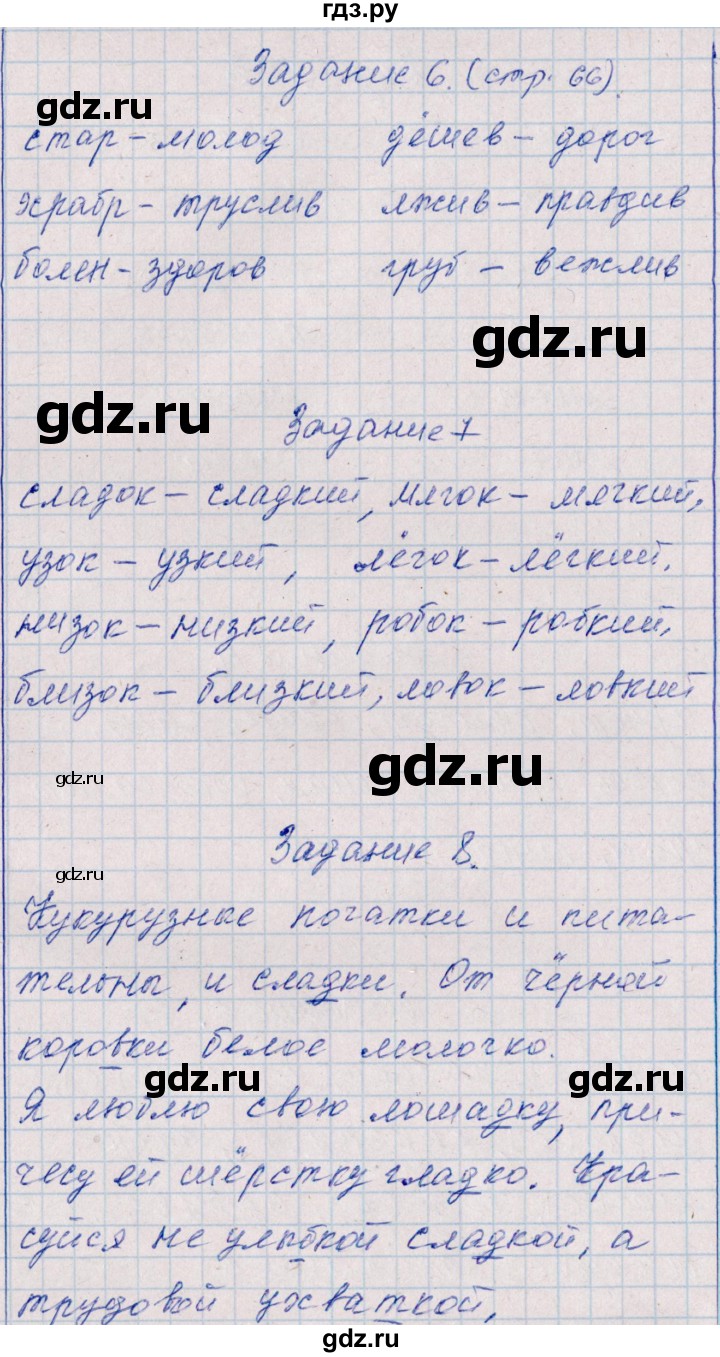 гдз.ру
Задание 6. (стр. 66).
gdz.ru
стар – молод дёшев – дорог
храбр – труслив лжив – правдив
болен – здоров груб – вежлив
gdz.ru
gdz.ru
Задание 7
сладок – сладкий, мягок – мягкий,
узок – узкий, лёгок – лёгкий,
низок – низкий, робок – робкий,
близок – близкий, ловок – ловкий
gdz.ru
gdz.ru
Задание 8.
gdz.ru
Кукурузные початки и пита-
тельны, и сладки. От чёрной
коровки белое молочко.
gdz.ru
gdz.ru
Я люблю свою лошадку, при-
чесу ей шёрстку гладко. Кра-
суйся не улыбкой сладкой, а
трудовой ухваткой,
gdz.ru